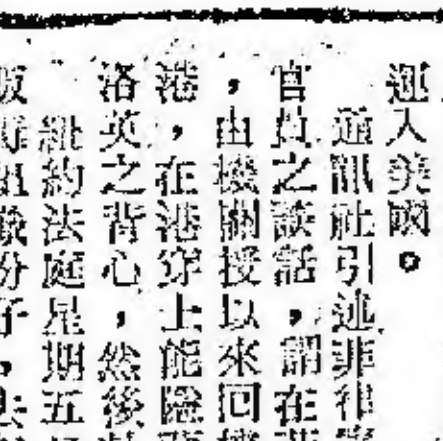 運入美國。
通訊社引述菲律
官員之談話，謂在
，由機關授以來回
港，在港穿上能隱
洛英之背心，然後
紐約法庭星期五
組織份子，